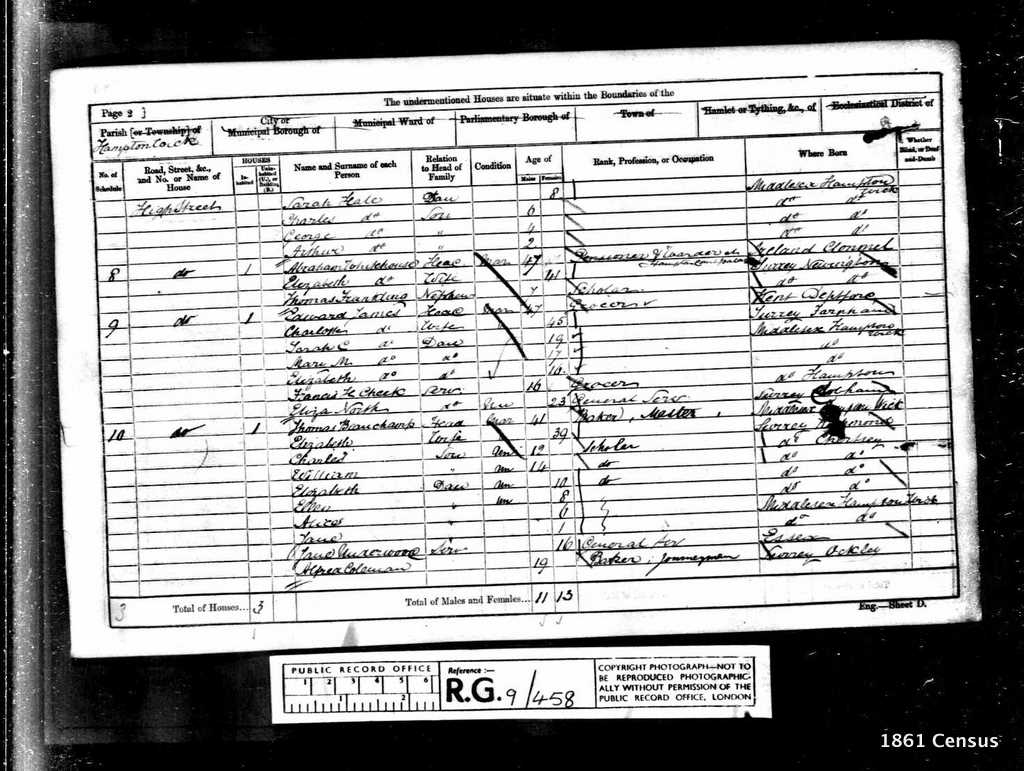 Page 2 3
The undermentioned Houses are situate within the Boundaries of the
Parish [or Township] of
City or Municipal Borough of
Municipal Ward of
Parliamentary Borough of
Town of
Hamlet or Tything, &c., of
Ecclesiastical District of
Hampton Wick
No. of Schedule
Road, Street, &c., and No. or Name of House
HOUSES
Inhabited
Uninhabited (U.), or Building (B.)
Name and Surname of each Person
Relation to Head of Family
Condition
Age of
Males
Females
Rank, Profession, or Occupation
Where Born
Whether Blind, or Deaf-and-Dumb
High Street Sarah Hale Dau 8 Middlesex Hampton Wick
Charles do Son 6 do do
George do " 4 do do
Arthur do " 2 do do
8 do 1 Abraham Whitehouse Head Mar 47 Pensioner Ireland Clonmel
Elizabeth do Wife 41 Surrey Newington
Thomas Frankling Nephew 7 Scholar Kent Deptford
9 do 1 Edward James Head Mar 47 Grocer Surrey Farnham
Charlotte do Wife 45 Middlesex Hampton Wick
Sarah C do Dau 19 do
Mary M. do do 17 do
Elizabeth do do 10 do Hampton
Francis H Cheek Serv 16 Grocer Surrey
Eliza North do Un 23 General Serv Middlesex Wick
10 do 1 Thomas Beauchamp Head Mar 41 Baker, Master Surrey Richmond
Elizabeth Wife 39 do Chertsey
Charles Son Un 12 Scholar do do
William " Un 14 do do do
Elizabeth Dau Un 10 do do do
Ellen " Un 8 Middlesex Hampton Wick
Alice " 6 do do
Jane " 1
Jane Underwood Serv 16 General Ser Essex
Alfred Coleman 19 Baker, Journeyman Surrey Ockley
3 Total of Houses... 3 Total of Males and Females... 11 13
Eng.—Sheet D.
PUBLIC RECORD OFFICE
1 2 3 4 5 6
1 2
Reference :—
R.G. 9/458
COPYRIGHT PHOTOGRAPH—NOT TO
BE REPRODUCED PHOTOGRAPHIC-
ALLY WITHOUT PERMISSION OF THE
PUBLIC RECORD OFFICE, LONDON
1861 Census